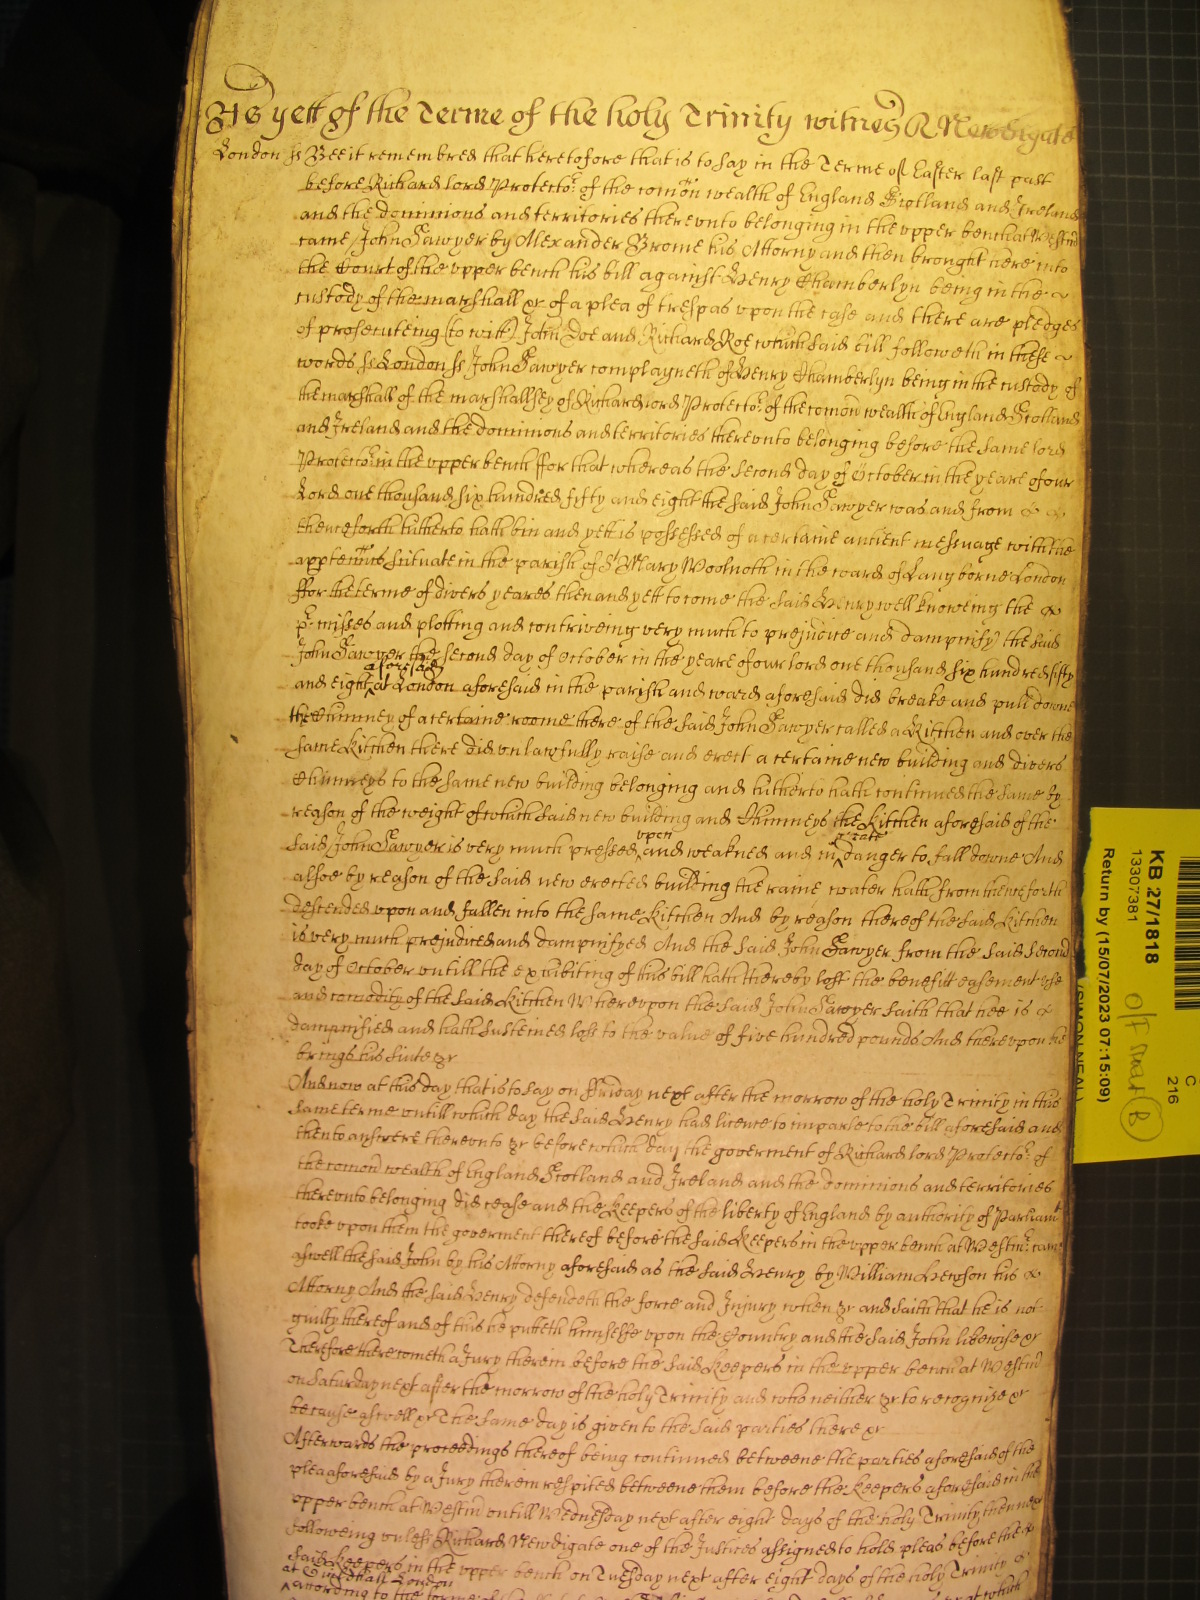 As yett of the Terme of the holy Trinity witnes R Newdigate
London ss Bee it remembred that heretofore that is to say in the Terme of Easter last past
before Richard lord Protector of the comon wealth of England Scotland and Ireland
and the dominions and territories therevnto belonging in the vpper bench at Westmr
came John Sawyer by Alexander Brome his Attorny and then brought here into
the Court of the vpper bench his bill against Henry Chamberlyn being in the
custody of the marshall &c of a plea of trespas vpon the case and there are pledges
of prosecuteing (to witt) John Doe and Richard Roe which said bill followeth in these
words ss London ss John Sawyer complayneth of Henry Chamberlyn being in the custody of
the marshall of the marshallsey of Richard lord Protector of the comon wealth of England Scotland
and Ireland and the dominions and territories therevnto belonging before the same lord
Protector in the vpper bench ffor that whereas the second day of October in the yeare of our
Lord one thousand six hundred fifty and eight the said John Sawyer was and from
thenceforth hitherto hath bin and yett is possessed of a certaine antient messuage with the
apptennces situate in the parish of St Mary Woolnoth in the ward of Langborne London
ffor the terme of divers yeares then and yett to come the said Henry well knoweing the
pmisses and plotting and contriveing very much to prejudice and dampnify the said
John Sawyer the second day of October in the yeare of our lord one thousand six hundred fifty
aforesaid
and eight at London aforesaid in the parish and ward aforesaid did breake and pull downe
the Chimney of a certaine roome there of the said John Sawyer called a Kitchen and over the
same Kitchen there did vnlawfully raise and erect a certaine new building and divers
Chimneys to the same new building belonging and hitherto hath continued the same by
reason of the weight of which said new building and Chimneys the Kitchen aforesaid of the
vpon great
said John Sawyer is very much pressed and weakned and in danger to fall downe And
alsoe by reason of the said new erected building the raine water hath from thenceforth
descended vpon and fallen into the same Kitchen And by reason thereof the said Kitchen
is very much prejudiced and dampnifyed And the said John Sawyer from the said second
day of October vntill the exhibiting of this bill hath thereby lost the benefitt easement vse
and comodity of the said Kitchen Wherevpon the said John Sawyer saith that hee is
dampnified and hath susteined loss to the value of five hundred pounds And therevpon he
brings his suite &c
And now at this day that is to say on ffriday next after the morrow of the holy Trinity in this
same terme vntill which day the said Henry had licence to imparle to the bill aforesaid and
then to answere therevnto &c before which day the goverment of Richard lord Protector of
the comon wealth of England Scotland and Ireland and the dominions and territories
therevnto belonging did cease and the Keepers of the liberty of England by authority of Parliamt
tooke vpon them the goverment thereof before the said Keepers in the vpper bench at Westmr came
aswell the said John by his Attorny aforesaid as the said Henry by William Hewson his
Attorny And the said Henry defendeth the force and Injury when &c and saith that he is not
guilty thereof and of this he putteth himselfe vpon the Country and the said John likewise &c
Therefore there cometh a Jury therein before the said Keepers in the vpper bench at Westmr
on Saturday next after the morrow of the holy Trinity and who neither &c to recognize &c
because aswell &c The same day is given to the said parties there &c
Afterwards the proceedings thereof being continued betweene the parties aforesaid of the
plea aforesaid by a Jury therein respited betweene them before the Keepers aforesaid in the
vpper bench at Westmr vntill Wednesday next after eight days of the holy Trinity then next
following vnless Richard Newdigate one of the Justices assigned to hold pleas before the
said Keepers in the vpper bench on Tuesday next after eight days of the holy Trinity
at Guildhall London
according to the forme of
KB 27/1818
13307381
Return by (15/07/2023 07:15:09)
(SIMON NEAL)
C
216
O/F
B